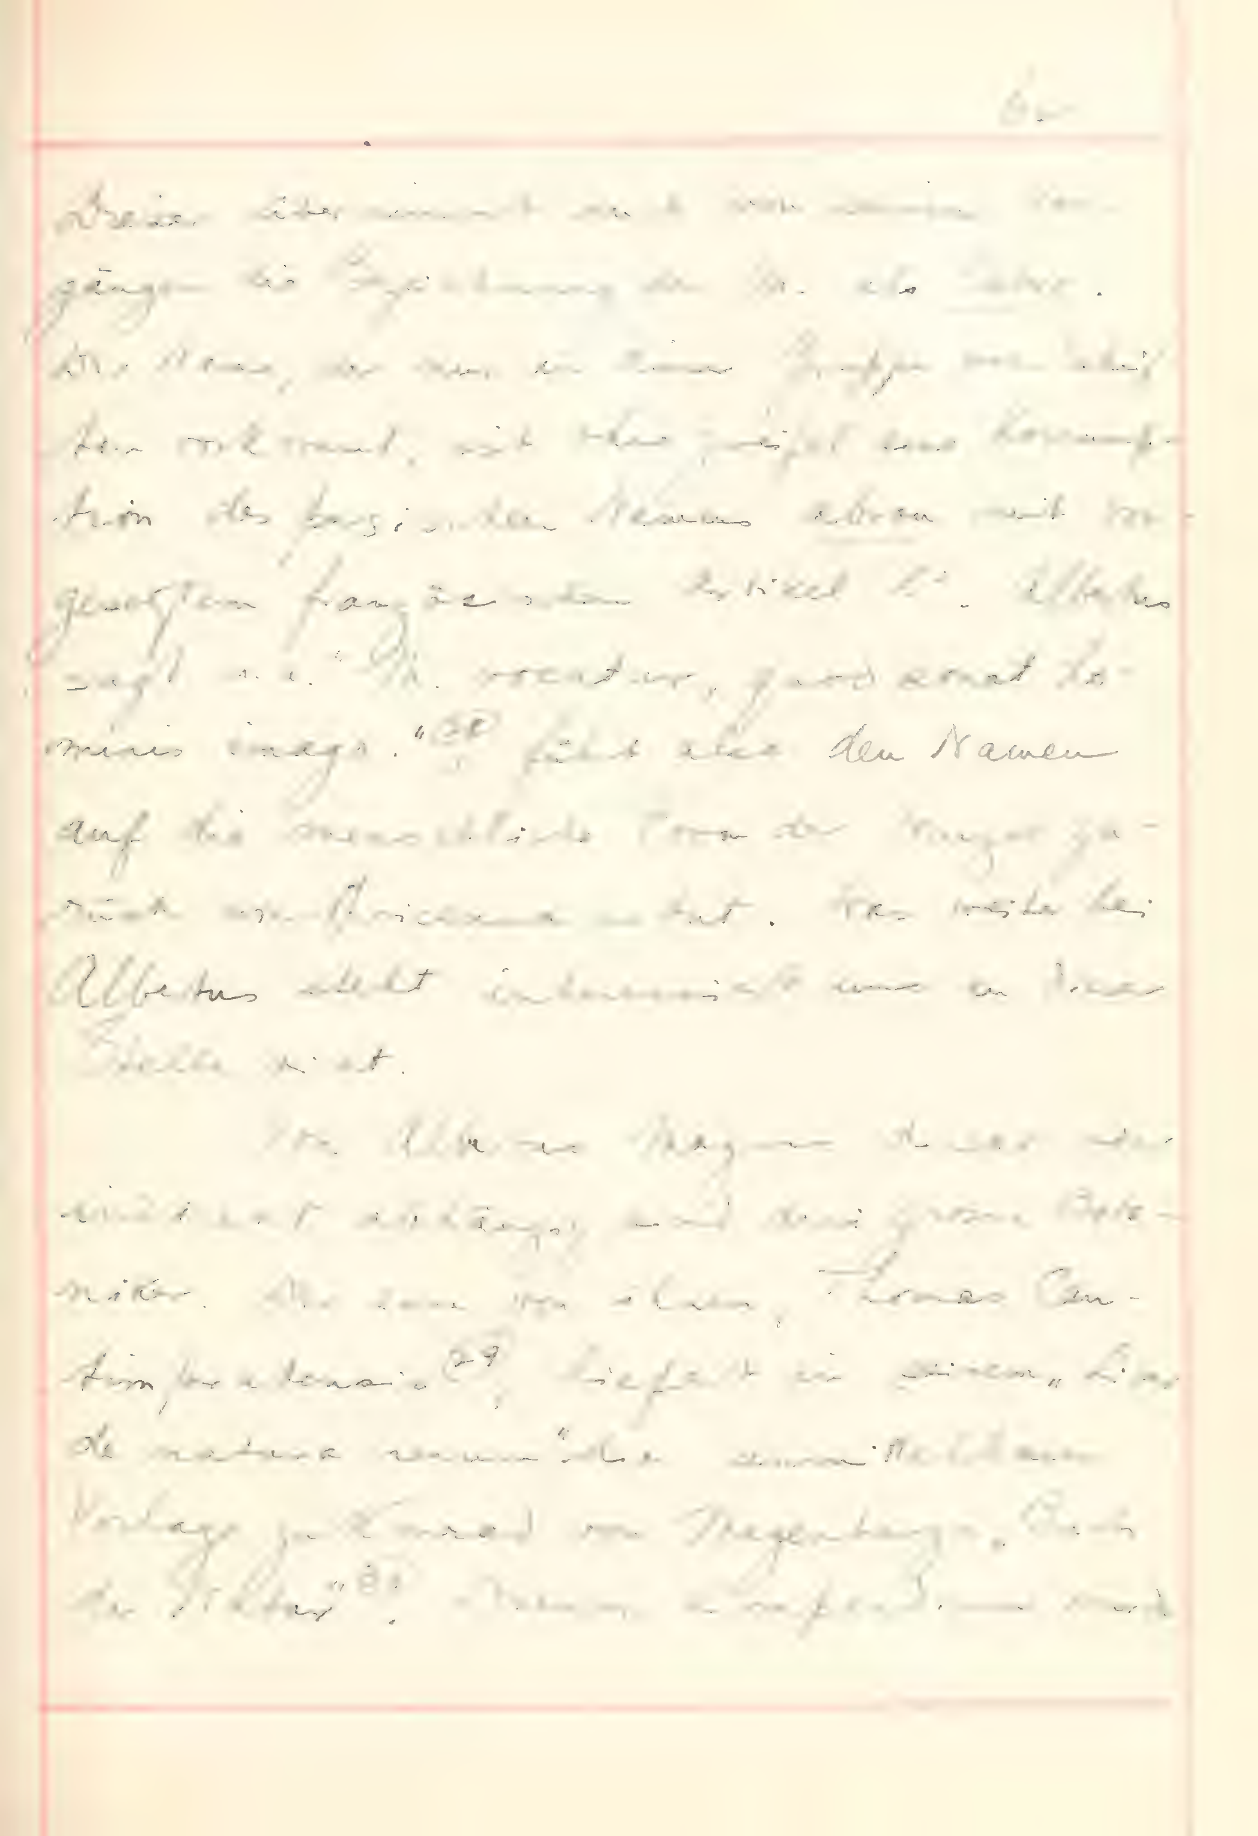 6.
Dieser übernimmt auch von seinen Vor-
gängern die Bezeichnung der M. als
Der Name, der nur in einer Gruppe von
ten vorkommt, ist ohne Zweifel eine Korrup-
tion des persischen Namens abrou mit vor-
gesetztem französischen Artikel l'. Albertus
sagt "M. vocatur, quod sonat ho-
minis imago." 28) führt also den Namen
auf die menschliche Form der Wurzel zu-
rück wie Avicenna es tut. Was weiter bei
Albertus steht interessiert uns an dieser
Stelle nicht.
Von Albertus Magnus
abhängig sind drei grosse Bota-
niker. Der eine von ihnen, Thomas Can-
timpratensis 29), liefert in seinem „Liber
de natura rerum" die unmittelbare
Vorlage zu Konrad von Megenbergs „Buch
der Natur" 30).